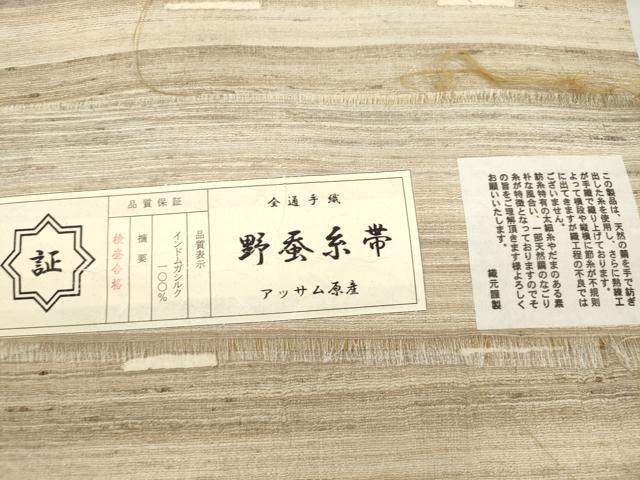 この製品は、天然の繭を手で紡ぎ
出した糸を使用し、さらに熟練工
が手織で織り上げております。
よって横段や縦横に節糸が不規則
に出てきますが織工程の不良では
ございません。
紡糸特有の太細糸やだまのある素
朴な風合い、一部天然繭のなごり
糸が特徴となっておりますのでそ
の旨をご理解頂きます様よろしく
お願いいたします。
織元謹製
全通手織
野蚕糸帯
アッサム原産
品質保証
品質表示
インドムガシルク
一〇〇%
摘要
検査合格
証